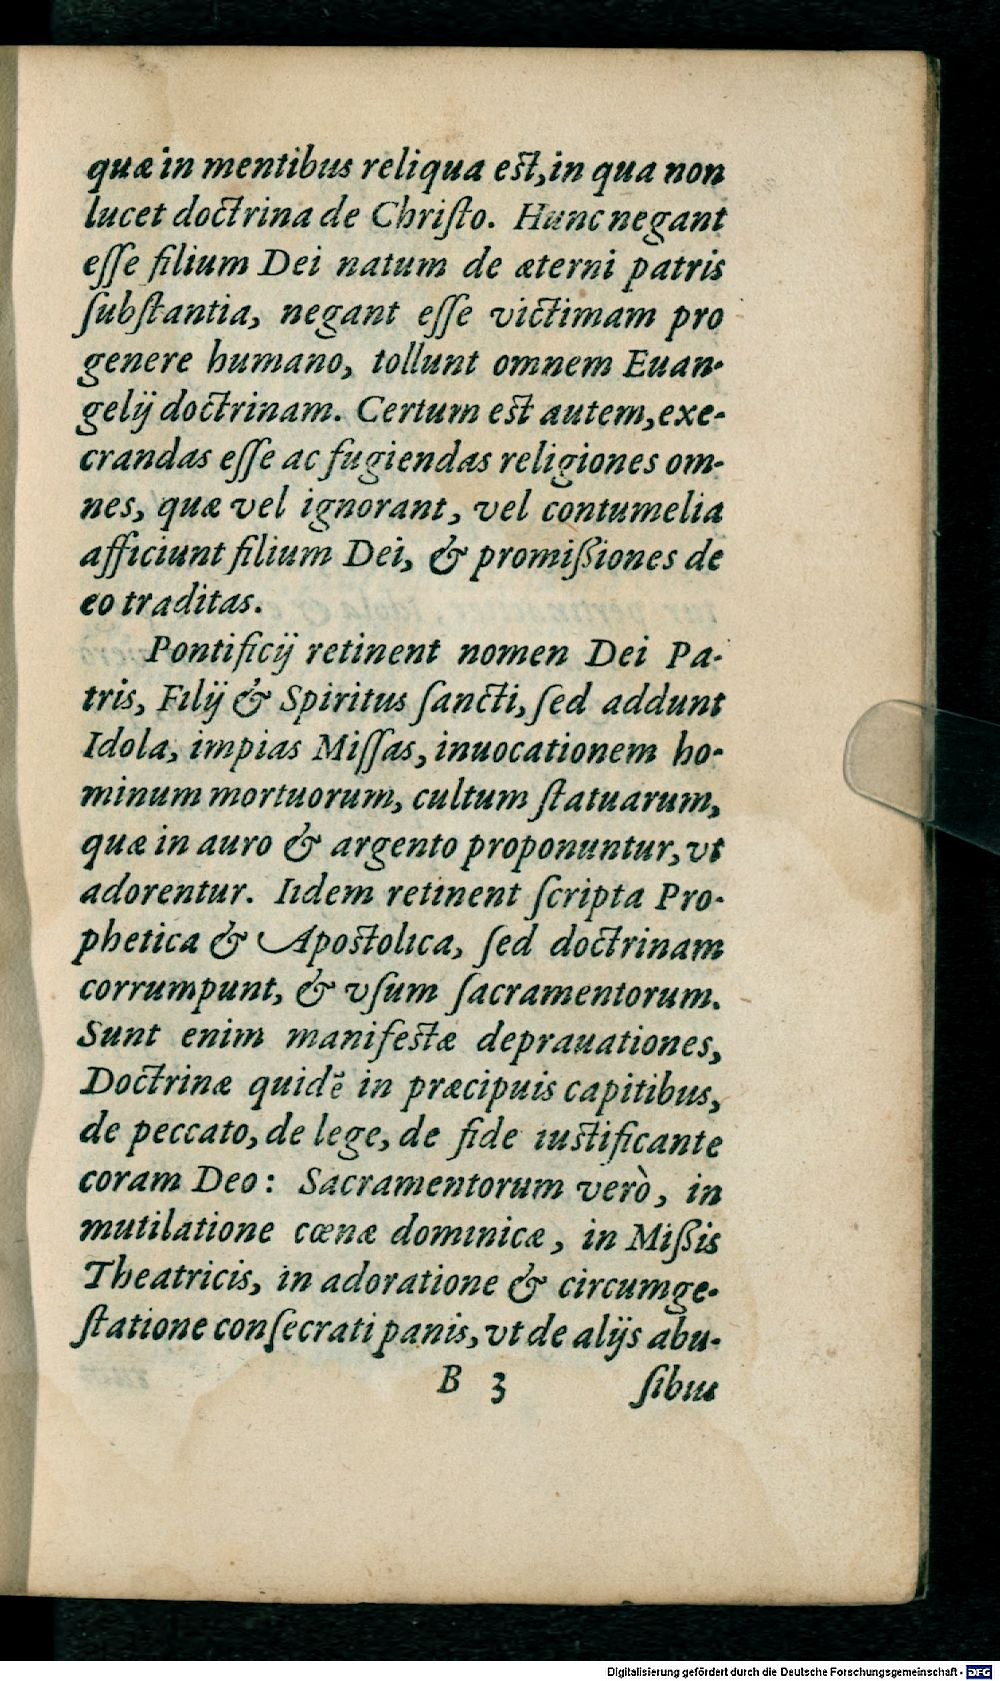 quæ in mentibus reliqua est, in qua non
lucet doctrina de Chriſto. Hunc negant
eſſe filium Dei natum de æterni patris
ſubſtantia, negant eſſe victimam pro
genere humano, tollunt omnem Euan-
gelij doctrinam. Certum est autem, exe-
crandas eſſe ac fugiendas religiones om-
nes, quæ vel ignorant, vel contumelia
afficiunt filium Dei, & promißiones de
eo traditas.
Pontificij retinent nomen Dei Pa-
tris, Filij & Spiritus ſancti, ſed addunt
Idola, impias Miſſas, inuocationem ho-
minum mortuorum, cultum ſtatuarum,
quæ in auro & argento proponuntur, vt
adorentur. Iidem retinent ſcripta Pro-
phetica & Apostolica, ſed doctrinam
corrumpunt, & vſum ſacramentorum.
Sunt enim manifestæ deprauationes,
Doctrinæ quidẽ in præcipuis capitibus,
de peccato, de lege, de fide iustificante
coram Deo: Sacramentorum verò, in
mutilatione cœnæ dominicæ, in Mißis
Theatricis, in adoratione & circumge-
ſtatione conſecrati panis, vt de alijs abu-
B 3 ſibus
Digitalisierung gefördert durch die Deutsche Forschungsgemeinschaft - DFG